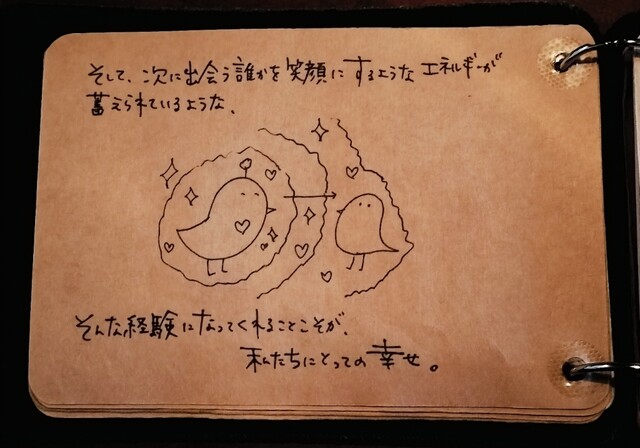 そして、次に出会う誰かを笑顔にするようなエネルギーが
蓄えられているような、
そんな経験になってくれることこそが、
私たちにとっての幸せ。